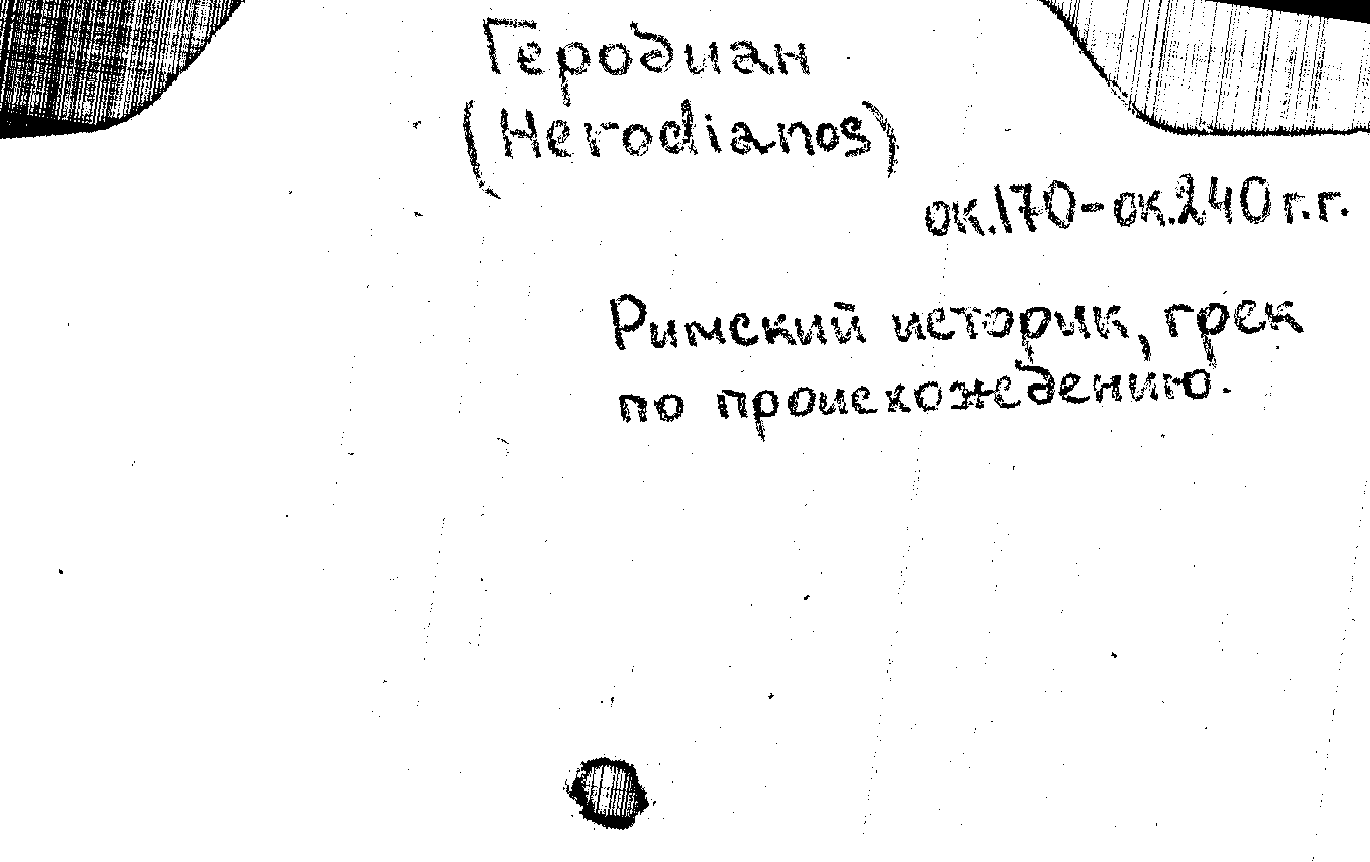 Геродиан
(Herodianos)
ок.170-ок.240 г.г.
Римский историк, грек
по происхождению.